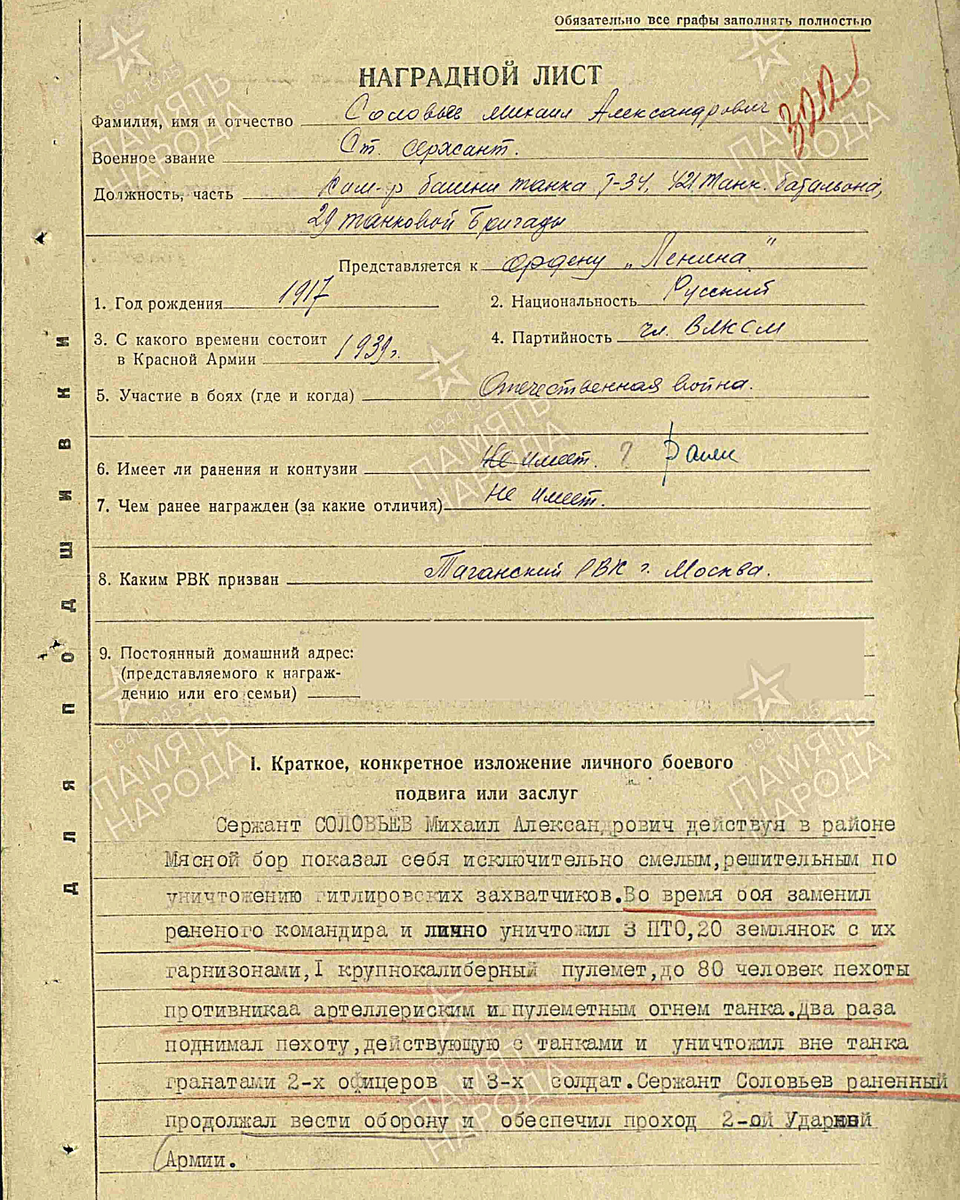 Обязательно все графы заполнять полностью
НАГРАДНОЙ ЛИСТ
322
Фамилия, имя и отчество Соловьев Михаил Александрович
Военное звание Ст. сержант.
Должность, часть Ком-р башни танка Т-34, 421 танк. батальона,
29 танковой Бригады
Представляется к ордену „Ленина"
1. Год рождения 1917 2. Национальность Русский
3. С какого времени состоит
в Красной Армии 1939г. 4. Партийность чл. ВЛКСМ
5. Участие в боях (где и когда) Отечественная война.
6. Имеет ли ранения и контузии Не имеет. ?
7. Чем ранее награжден (за какие отличия) Не имеет.
8. Каким РВК призван Таганский РВК г. Москва.
9. Постоянный домашний адрес:
(представляемого к награж-
дению или его семьи)
I. Краткое, конкретное изложение личного боевого
подвига или заслуг
Сержант СОЛОВЬЕВ Михаил Александрович действуя в районе
Мясной бор показал себя исключительно смелым,решительным по
уничтожению гитлировских захватчиков.Во время боя заменил
раненого командира и лично уничтожил 3 ПТО,20 землянок с их
гарнизонами,I крупнокалиберный пулемет,до 80 человек пехоты
противникаа артеллериским и пулеметным огнем танка.Два раза
поднимал пехоту,действующую с танками и уничтожил вне танка
гранатами 2-х офицеров и 3-х солдат.Сержант Соловьев раненный
продолжал вести оборону и обеспечил проход 2-ой Ударной
Армии.
ДЛЯ ПОДШИВКИ
ПАМЯТЬ НАРОДА
1941-1945